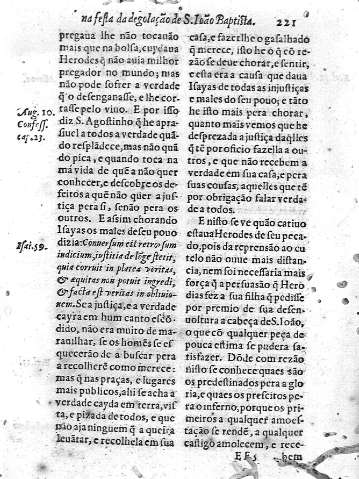 na festa da degolação de S. Ioão Baptista. 221
pregaua lhe não tocanão
mais que na bolsa, cuydaua
Herodes q̃ não auia milhor
pregador no mundo; mas
não pode sofrer a verdade
q̃ o desenganasse, e lhe cor-
tasse pelo viuo. E por isso
Aug. 10.
Confess.
cap. 23.
diz S. Agostinho q̃ he apra-
siuel a todos a verdade quã-
do resplãdece, mas não quã
do pica, e quando toca na
má vida de quẽ a não quer
conhecer, e descobre os de-
feitos a quẽ não quer a jus-
tiça pera si, senão pera os
outros. E assim chorando
Isayas os males deseu pouo
Isai. 59.
dizia: Conuersum est retrorsum
iudicium, iustitia de lõge stetit,
quia corruit in platea veritas,
& æquitas non potuit ingredi,
& facta est veritas in obliuio-
nem. Se a justiça, e a verdade
cayra em hum canto escõ-
dido, não era muito de ma-
rauilhar, se os homẽs se es-
quecerão de a buscar pera
a recolherẽ como merece:
mas q̃ nas praças, e lugares
mais publicos, ahi se acha a
verdade cayda em terra, vis-
ta, e pizada de todos, e que
não aja ninguem q̃ a queira
leuãtar, e recolhela em sua
casa, e fazerlhe o gasalhado
q̃ merece, isto he o q̃ cõ re-
zão se deue chorar, e sentir,
e esta era a causa que daua
Isayas de todas as injustiças
e males do seu pouo; e tãto
he isto mais pera chorar,
quanto mais vemos que he
desprezada a justiça daq̃lles
q̃ tẽ por oficio fazella a ou-
tros, e que não recebem a
verdade em sua casa, e pera
suas cousas, aquelles que tẽ
por obrigação falar verda-
de a todos.
E nisto se vè quão catiuo
estaua Herodes de seu peca-
do, pois da reprensão ao cu
telo não ouue mais distan-
cia, nem foi necessaria mais
força q̃ a persuasão q̃ Hero
dias fez a sua filha q̃ pedisse
por premio de sua desen-
uoltura a cabeça de S. Ioão,
o que cõ qualquer peça de
pouca estima se pudera sa-
tisfazer. Dõde com rezão
nisto se conhece quaes são
os predestinados pera a glo-
ria, e quaes os prescitos pe-
ra o inferno, porque os pri-
meiros a qualquer amoes-
tação se rendẽ, a qualquer
castigo amolecem, e rece-
bem